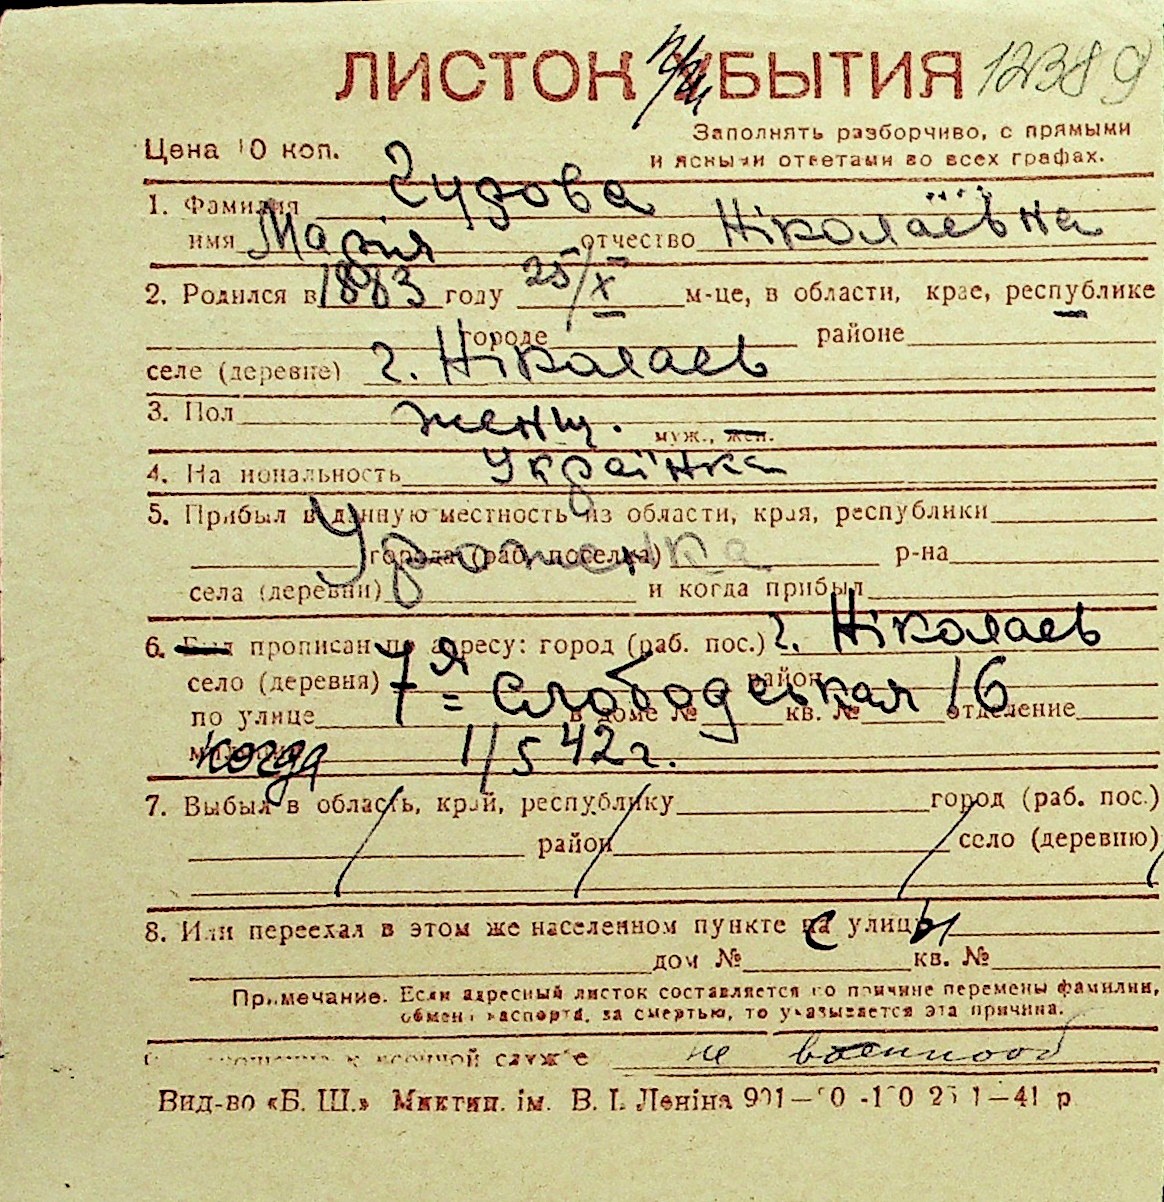 ЛИСТОК ПРИБЫТИЯ 12389
Цена 10 коп.
Заполнять разборчиво, с прямыми
и ясными ответами во всех графах.
1. Фамилия Чудова
имя Марія отчество Ніколаёвна
2. Родился в 1883 году 25/X м-це, в области, крае, республике
городе районе
селе (деревне) г. Ніколаев
3. Пол женщ. муж., жен.
4. Национальность Украінка
5. Прибыл в данную местность из области, края, республики
города (раб. поселка) р-на
Уроженка
села (деревни) и когда прибыл
6. Был прописан по адресу: город (раб. пос.) г. Ніколаев
село (деревня) район
7я Слободская 16
по улице в доме № кв. № отделение
когда 1/5 42 г.
7. Выбыл в область, край, республику город (раб. пос.)
район село (деревню)
8. Или переехал в этом же населенном пункте с улицы
дом № кв. №
Примечание. Если адресный листок составляется по причине перемены фамилии,
обмена паспорта, за смертью, то указывается эта причина.
к военной службе не военнооб
Вид-во «Б. Ш.» Миктип. ім. В. І. Леніна